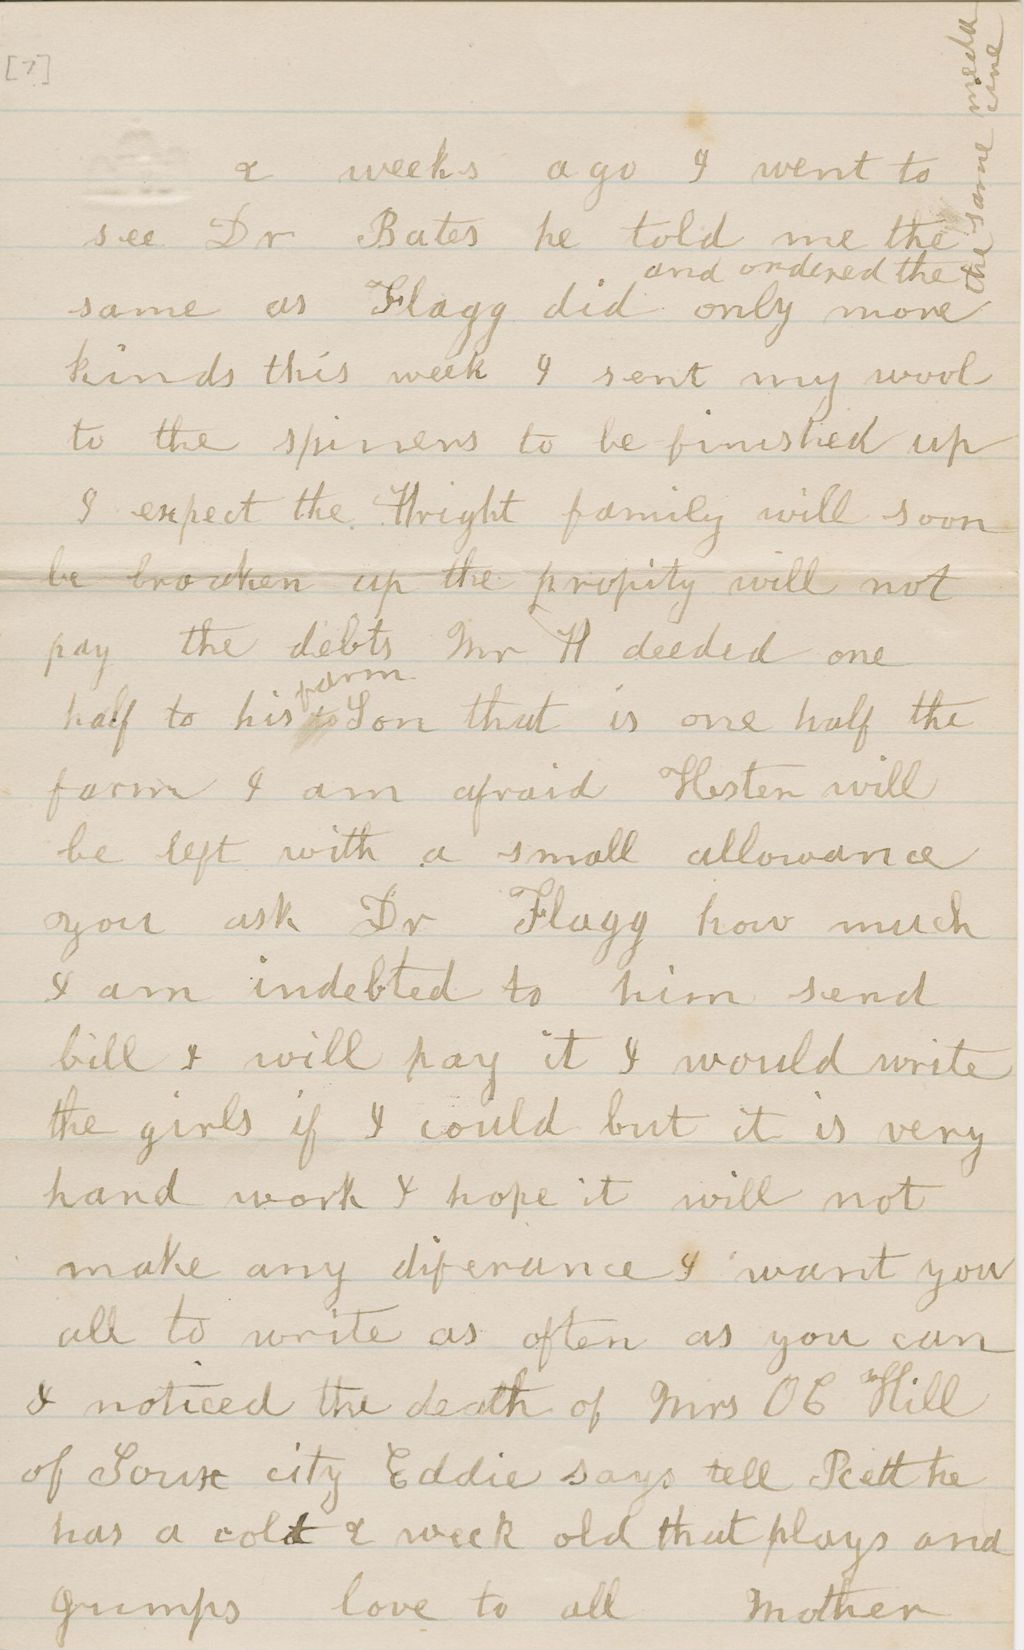 [7]
2 weeks ago I went to
see Dr Bates he told me the
and ordered the
the same meda
cine
same as Flagg did only more
kinds this week I sent my wool
to the spiners to be finished up
I expect the Hright family will soon
be broaken up the propity will not
pay the debts Mr H deeded one
farm
half to his Son that is one half the
farm I am afraid Hester will
be left with a small allowance
you ask Dr Flagg how much
I am indebted to him send
bill I will pay it I would write
the girls if I could but it is very
hard work I hope it will not
make any diferance I want you
all to write as often as you can
I noticed the death of Mrs O C Hill
of Soux city Eddie says tell he
has a colt 2 week old that plays and
jumps love to all Mother